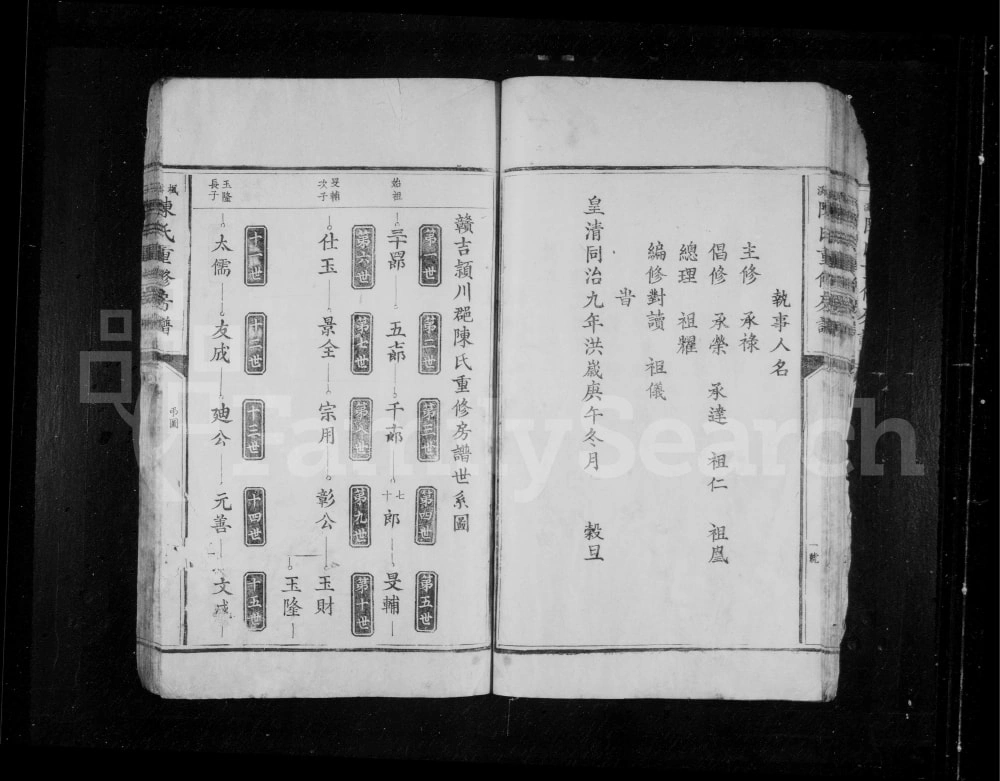 執事人名
主修 承祿
倡修 承榮 承達 祖仁 祖鳳
總理 祖耀
編修對讀 祖儀
旹
皇清同治九年洪嵗庚午冬月 穀旦
一號
贛吉頴川郡陳氏重修房譜世系圖
第一世 第二世 第三世 第四世 第五世
始祖
五郎 千郎 十七郎 旻輔
第六世 第七世 第九世 第十世
旻輔次子
仕玉 景全 宗用 彰公 玉財
玉隆
十一世 十二世 十三世 十四世 十五世
玉隆長子
太儒 友成 廸公 元善
楓 陳氏重修房譜
吊圖
FamilySearch